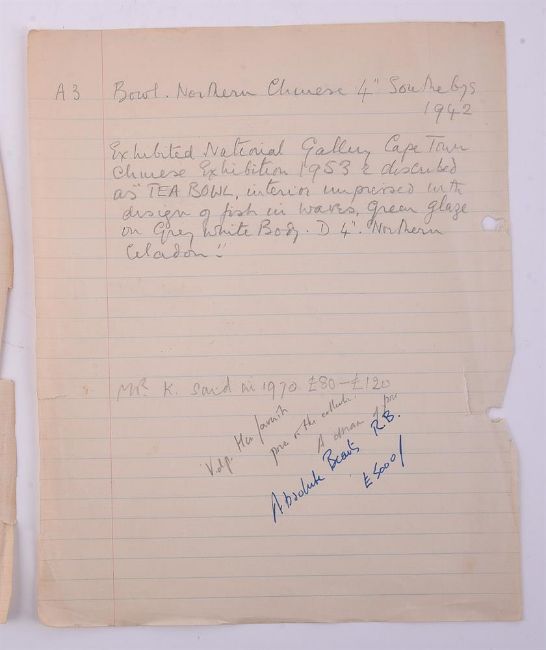 A3 Bowl. Northern Chinese 4" Southebys
1942
Exhibited National Gallery Cape Town
Chinese Exhibition 1953 & described
as "TEA BOWL, interior impressed with
design of fish in waves, Green glaze
on Grey White Body. D 4". Northern
Celadon"
Mr. K. said in 1970 £80-£120
V.dp. Her favourite
piece in the collection.
A dream of
Absolute Beauty R.B.
£5000/